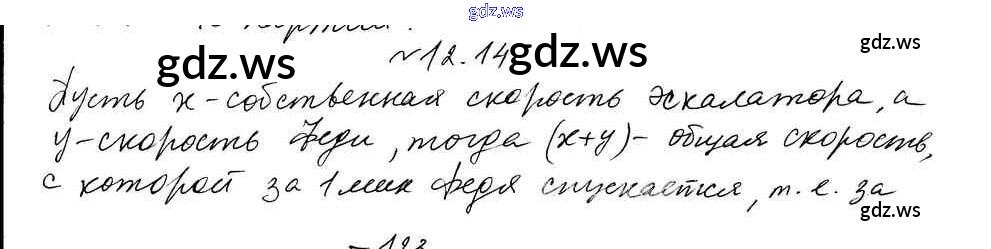 gdz.ws
№12.14
gdz.ws
gdz.ws
Пусть x-собственная скорость эскалатора, а
y-скорость Феди, тогда (x+y)- общая скорость,
с которой за 1 мин Федя спускается, т.е. за
gdz.ws
gdz.ws
gdz.ws